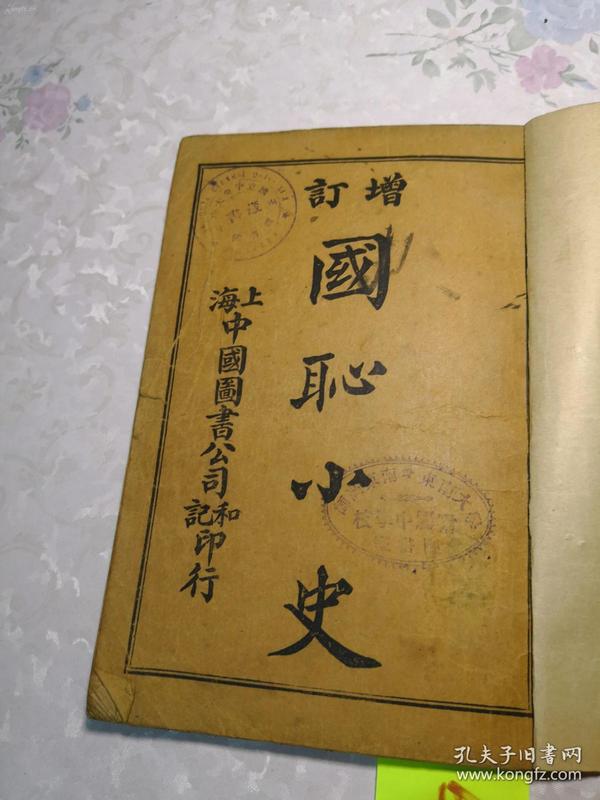 增訂
國恥小史
上海中國圖書公司和記印行
孔夫子旧书网
www.kongfz.com